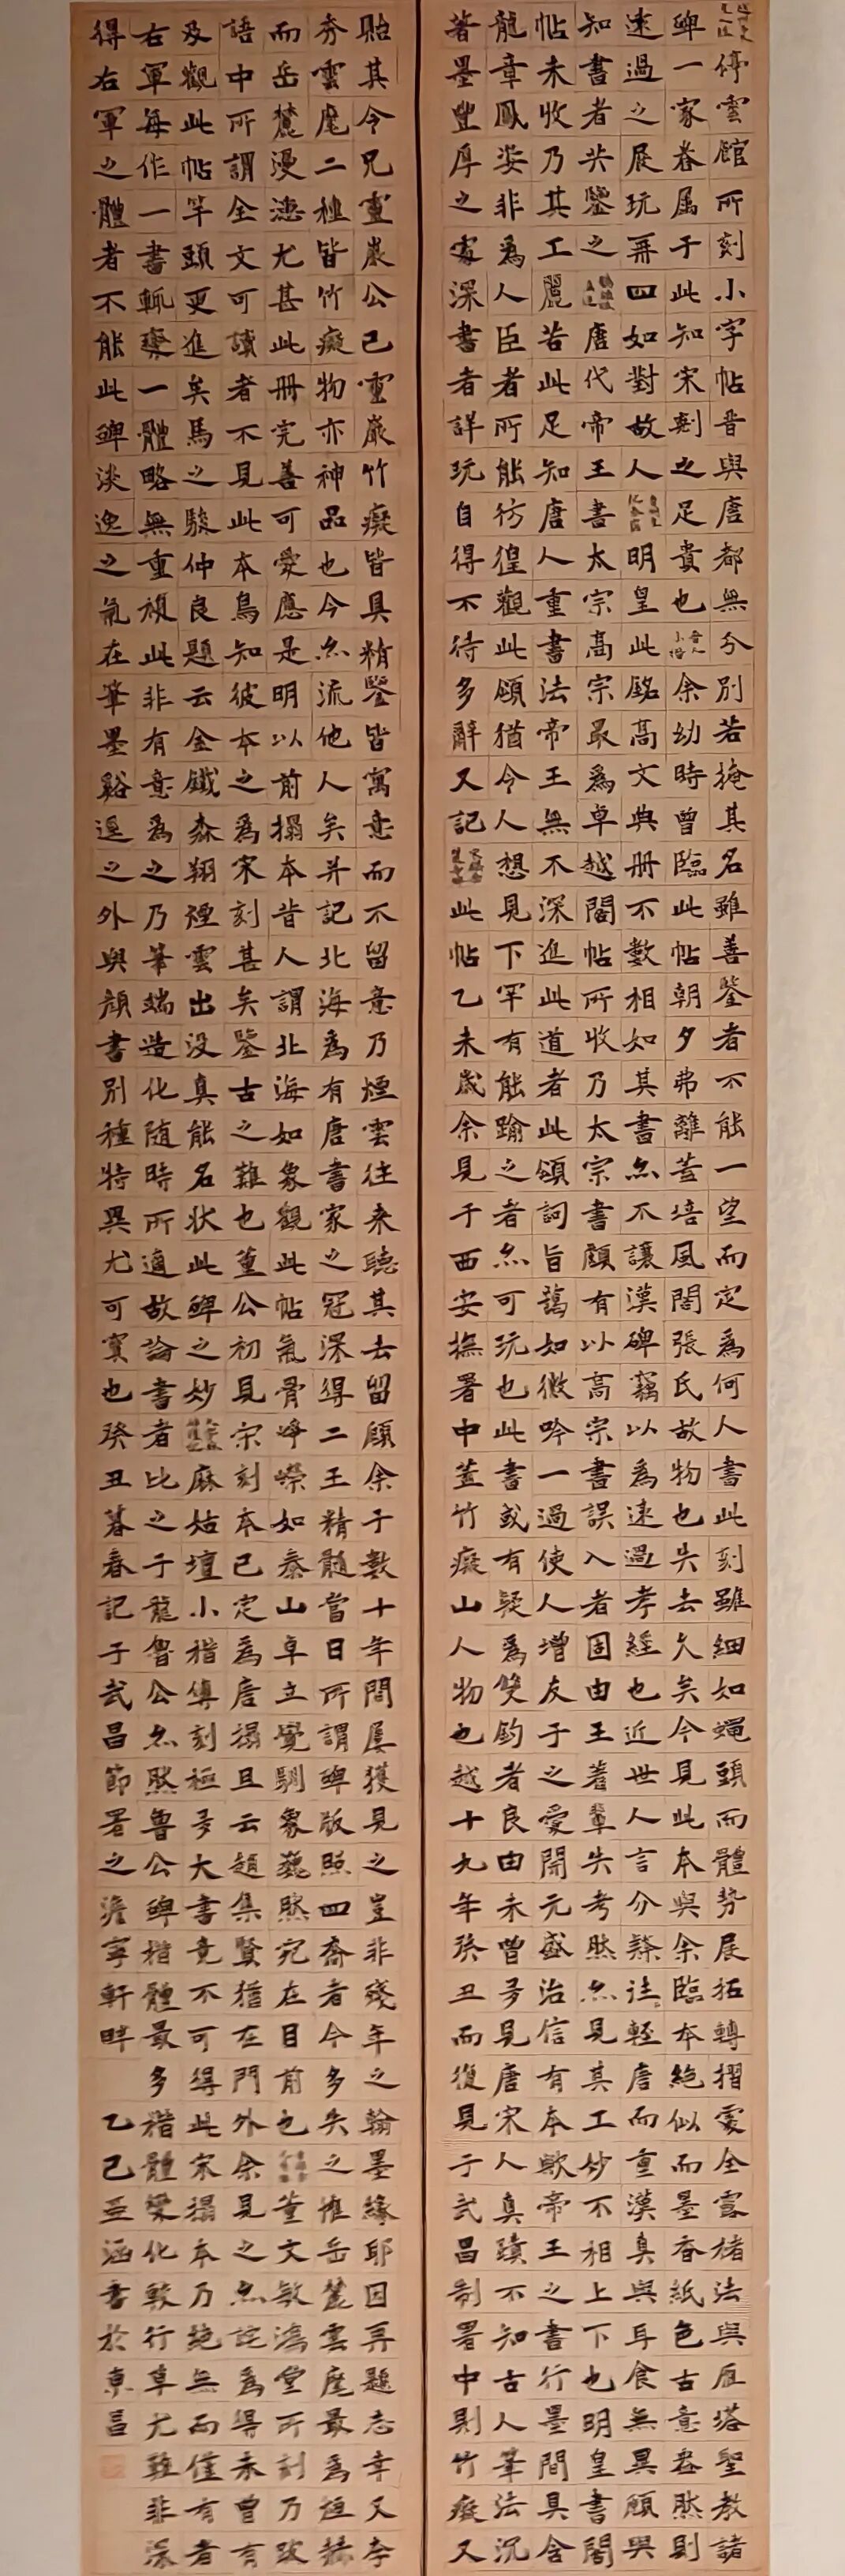 停雲館所刻小字帖晉與唐都無分別若掩其名雖善鑒者不能一望而定為何人書此刻雖細如蠅頭而體勢展拓轉摺處全露楮法與雁塔聖教諸
碑一家眷属于此知宋刻之足貴也晉人小楷余幼時曾臨此帖朝夕弗離葢培風閣張氏故物也失去久矣今見此本與余臨本絕似而墨香紙色古意盎然則
速過之展玩再四如對故人明皇此銘高文典册不數相如其書亦不讓漢碑竊以為速過孝經也近世人言分隸詿輕唐而重漢真與耳食無異顧與
知書者共鑒之唐代帝王書太宗高宗最為卓越閣帖所收乃太宗書頗有以高宗書誤入者固由王著輩失考然亦見其工妙不相上下也明皇書閣
帖未收乃其工麗若此足知唐人重書法帝王無不深進此道者此頌詞旨藹如微吟一過使人增友于之愛開元盛治信有本歟帝王之書行墨間具含
龍章鳳姿非為人臣者所能彷徨觀此頌猶令人想見下罕有能踰之者亦可玩也此書或有疑為雙鈎者良由未曾多見唐宋人真蹟不知古人筆法沉
著墨豐厚之處深書者詳玩自得不待多辭又記此帖乙未歲余見于西安撫署中葢竹癡山人物也越十九年癸丑而復見于武昌制署中則竹癡又
貽其令兄靈巖公已靈巖竹癡皆具精鑒皆寓意而不留意乃煙雲往来聽其去留顧余于數十年間屢獲見之豈非殘年之翰墨緣耶因再題志幸又李
秀雲麾二種皆竹癡物亦神品也今亦流他人矣并記北海為有唐書家之冠深得二王精髓當日所謂碑版照四裔者今多失之惟岳麓雲麾最為烜赫
而岳麓漫漶尤甚此冊完善可愛應是明以前搨本昔人謂北海如象觀此帖氣骨崢嶸如泰山卓立覺馴象巍然宛在目前也董文敏鴻堂所刻乃改
語中所謂全文可讀者不見此本烏知彼本之為宋刻甚矣鑒古之難也董公初見宋刻本已定為唐搨且云趙集賢猶在門外余見之亦詫為得未曾有
及觀此帖竿頭更進矣馬之駿仲良題云金鐵森翔煙雲出没真能名状此碑之妙麻姑壇小楷傳刻極多大書竟不可得此宋搨本乃絶無而僅有者
右軍每作一書輒棄一體略無重複此非有意為之乃筆端造化随時所適故論書者比之于龍魯公亦然魯公碑楷體最多楷體變化較行草尤難非深
得右軍之體者不能此碑淡逸之氣在筆墨谿逕之外與顔書别種特異尤可寳也癸丑暮春記于武昌節署之澹寧軒畔 乙己亚涵書於東昌